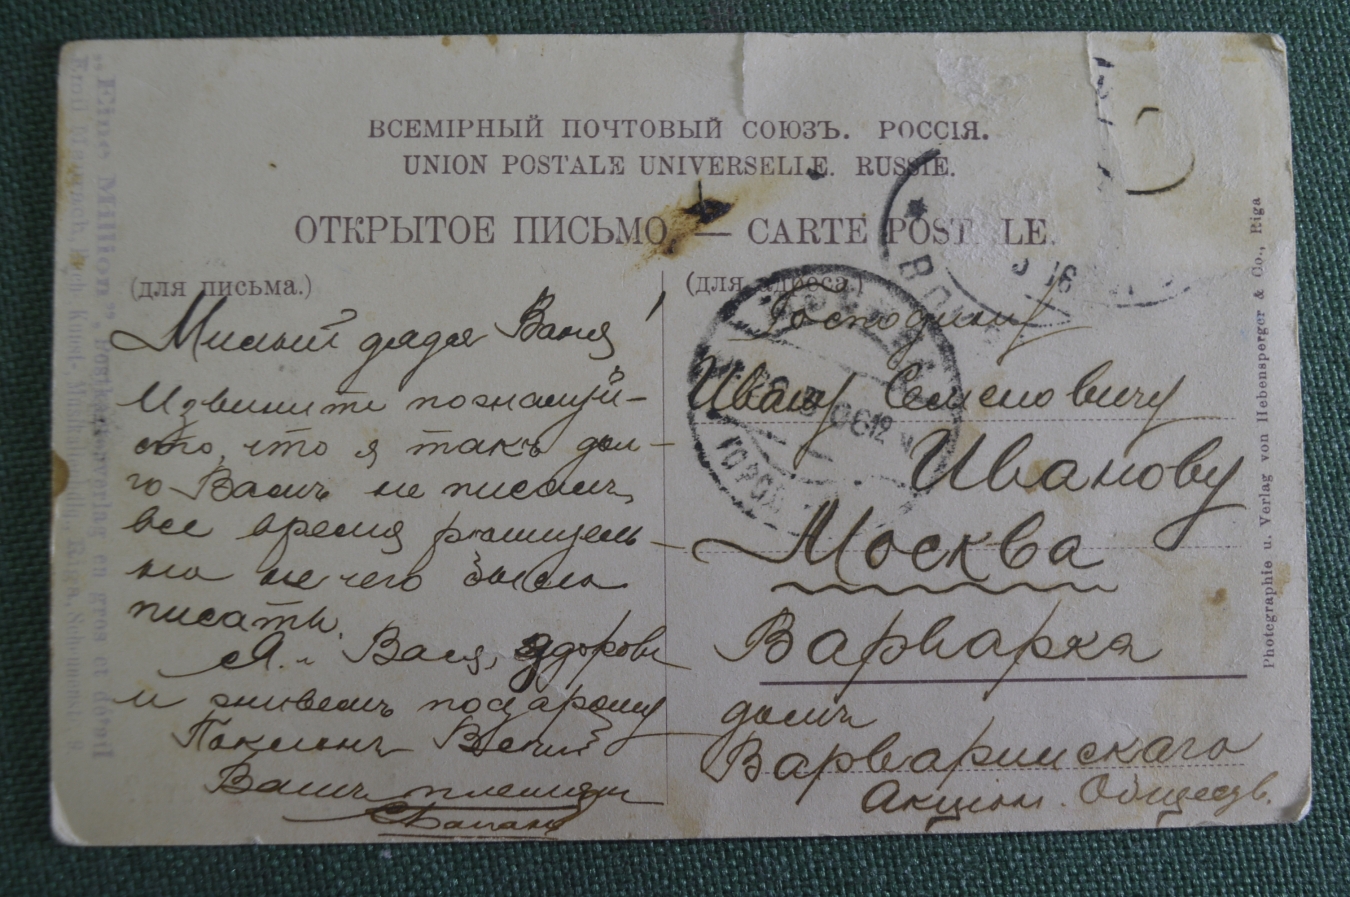 ВСЕМІРНЫЙ ПОЧТОВЫЙ СОЮЗЪ. РОССІЯ.
UNION POSTALE UNIVERSELLE. RUSSIE.
ОТКРЫТОЕ ПИСЬМО — CARTE POST LE.
(для письма.)
Милый дядя Ваня!
Извините пожалуй-
ста, что я такъ дол-
го Вамъ не писалъ,
все время рѣшитель-
но не чего было
писать.
Я и Вася, здоровы
и живемъ по старому
Поклонъ Всемъ
Вашъ племян
(для адреса.)
Господину
Ивану Семеновичу
Иванову
Москва
Варварка
домъ
Варваринскаго
Акціон. Обществ.
Photographie u. Verlag von Hebensperger & Co., Riga
"Eine Million", Postkartenverlag en gros et detail